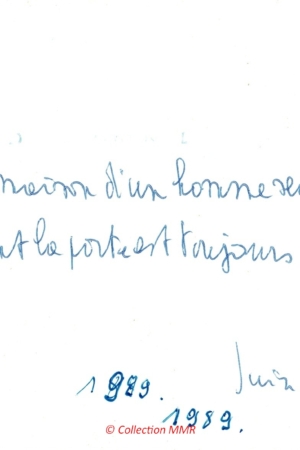 maison d'un homme
la porte est toujours
Juin
1989.
1989.
© Collection MMR